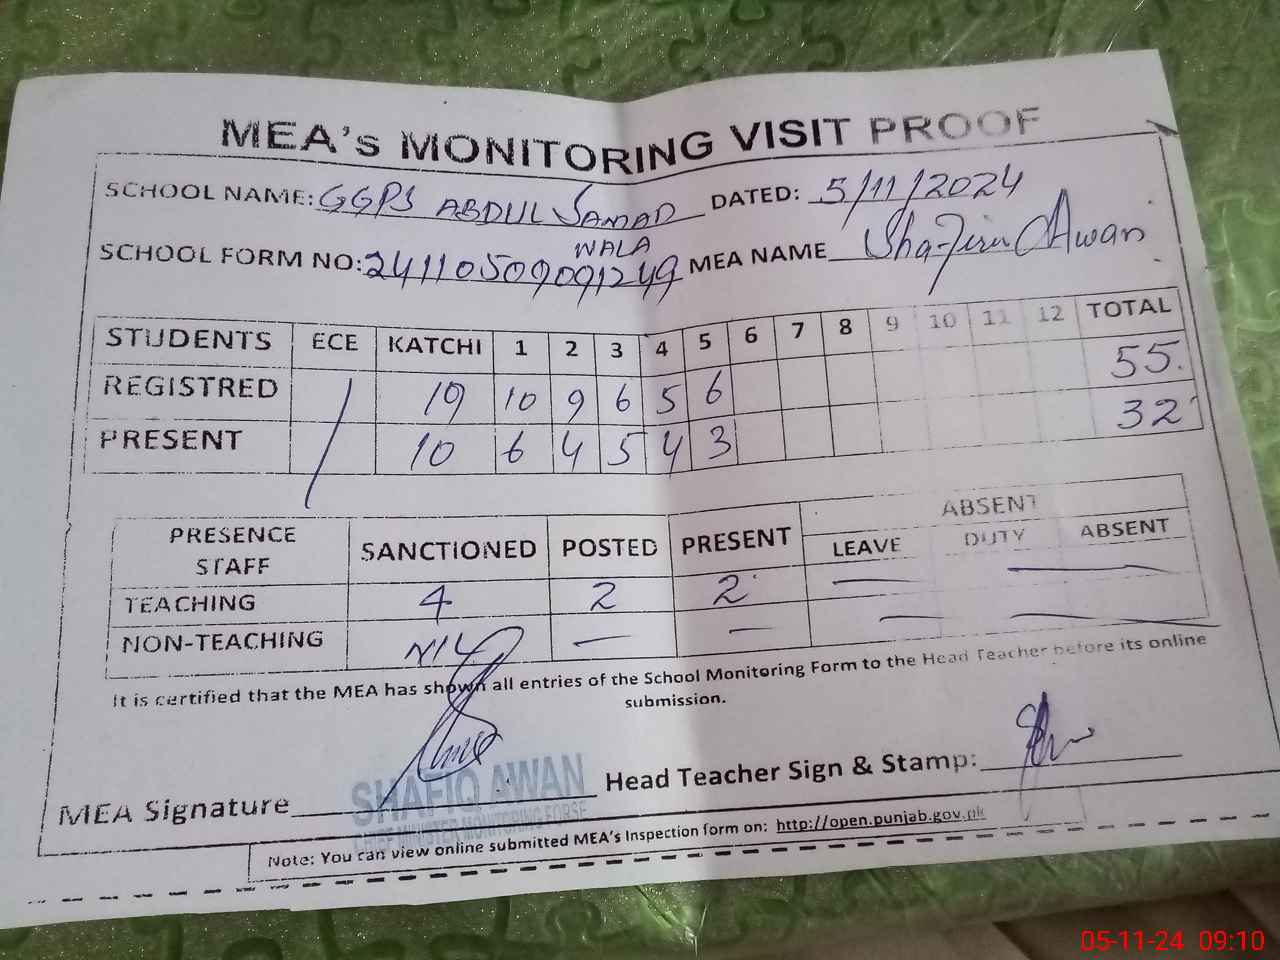 MEA's MONITORING VISIT PROOF
SCHOOL NAME: GGPS ABDUL SAMAD DATED: 5/11/2024
WALA
SCHOOL FORM NO: 24110509091249 MEA NAME Awan
STUDENTS ECE KATCHI 1 2 3 4 5 6 7 8 9 10 11 12 TOTAL
REGISTRED 19 10 9 6 5 6 55.
PRESENT 10 6 4 5 4 3 32
PRESENCE STAFF SANCTIONED POSTED PRESENT ABSENT
LEAVE DUTY ABSENT
TEACHING 4 2 2 — —
NON-TEACHING NIL — — — —
It is certified that the MEA has shown all entries of the School Monitoring Form to the Head Teacher before its online
submission.
MEA Signature Head Teacher Sign & Stamp:
SHAFIQ AWAN
CHIEF MINISTER MONITORING FORSE
Note: You can view online submitted MEA's Inspection form on: http://open.punjab.gov.pk
05-11-24 09:10